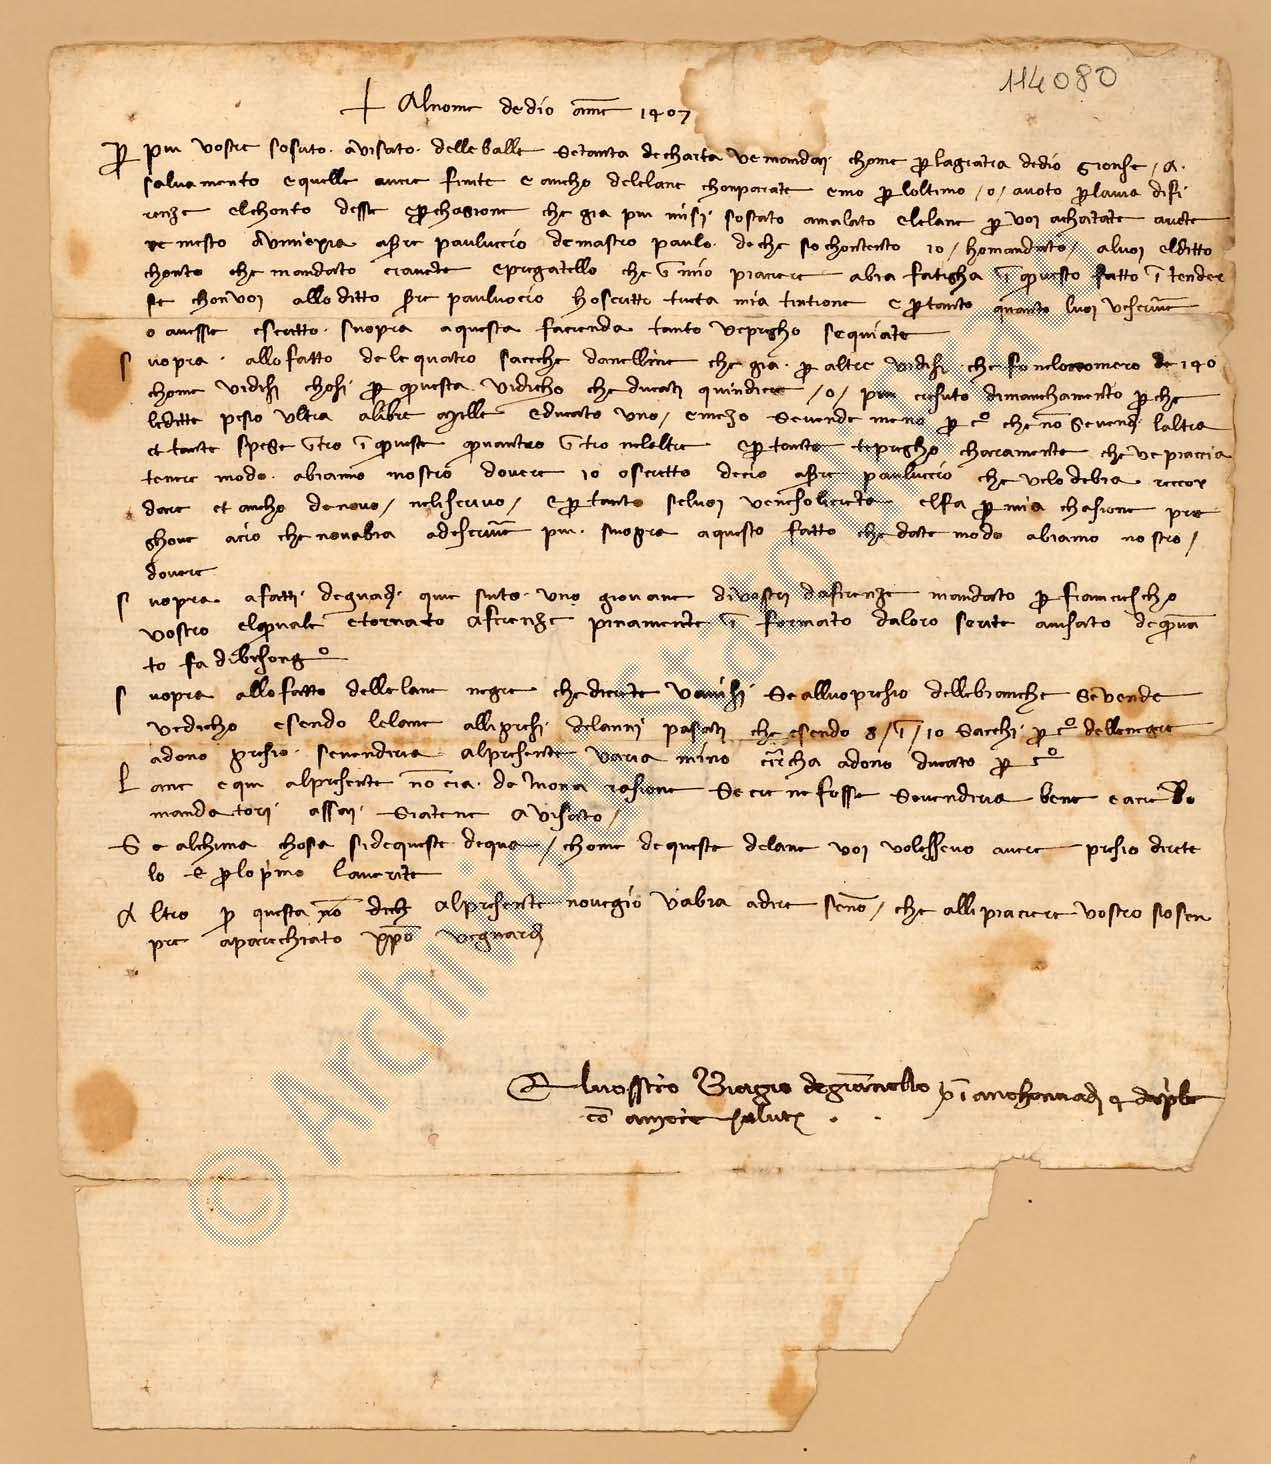 114080
+ Al nome de dio ame 1407
per piu vostre so suto avisato delle balle setanta de charta ve mandai chome per la gratia de dio gionse a
salvamento e quelle avere finite e ancho de le lane chonparate e mo per l oltimo o avoto per la via di fi
renze el chonto desse e per chagione che gia piu misi so stato amalato e le lane per voi achatate avete
remesto a Vinexia a ser paulucio de mastro paulo de che so chontento io ho mandato a lvoi el ditto
chonto che mandato m avete e pregatello che in mio piacere abia faticha in questo fatto intender
se chon voi allo ditto ser pauluccio ho scritto tucta mia tintione e per tanto quanto lvoi ve scrivire
o avesse escritto suopra a questa facienda tanto ve pregho sequiate
suopra allo fatto de le quatro sacche d anelline che gia per altre vi dissi che so nelo nomero de 140
chome vi dissi chosi per questa vi dicho che ducati quindici o piu cresuto di manchamento perche
le ditte pesio ultra a libre mille e ducato uno e mezo se vende meno per co che non se vende l altra
et tante spese entro in queste quanto entro ne l altre e per tanto te pregho charamente che ve piaccia
tenere modo abiamo nostro dovere io o scritto de cio a ser paulucio che ve lo debia recor
dare et ancho de novo ne li scrivo e per tanto se lvoi ve ne soliccita el fa per mia chasione pre
ghove acio che non abia a descrivere piu suopra a questo fatto che date modo abiamo nostro
dovere
suopra a fatti de guadi que suto uno giovane di vostri da firenze mandato per francescho
vostro el quale e tornato a firenze pinamente in formato da loro serite avisato de quan
to fa di bisongo
suopra allo fatto delle lane negre che dicete v avisi se alluopresio delle bianche se vende
ve dicho esendo le lane alli presi de l anni pasati che esendo 8 in 10 sacchi per co delle negre
a dono presio se vendiria al presente varia mino circha a dono ducato per co
Lane e qui al presente non cia de mona rasione se ce ne fosse se vendiria bene e a ce do
mandatori assai siatene avisato
Se alchuna chosa si de queste de qua chome de queste de lane voi volessevo avere presio direte
lo e per lo primo l averite
Altro per questa non dicho al presente non cegio v abia a dire seno che alli piacere vostro so sen
pre aparechiato christo ve guardi
El vostro Biagio de giovanello in anchona a di 4 d aprile
con amore salute